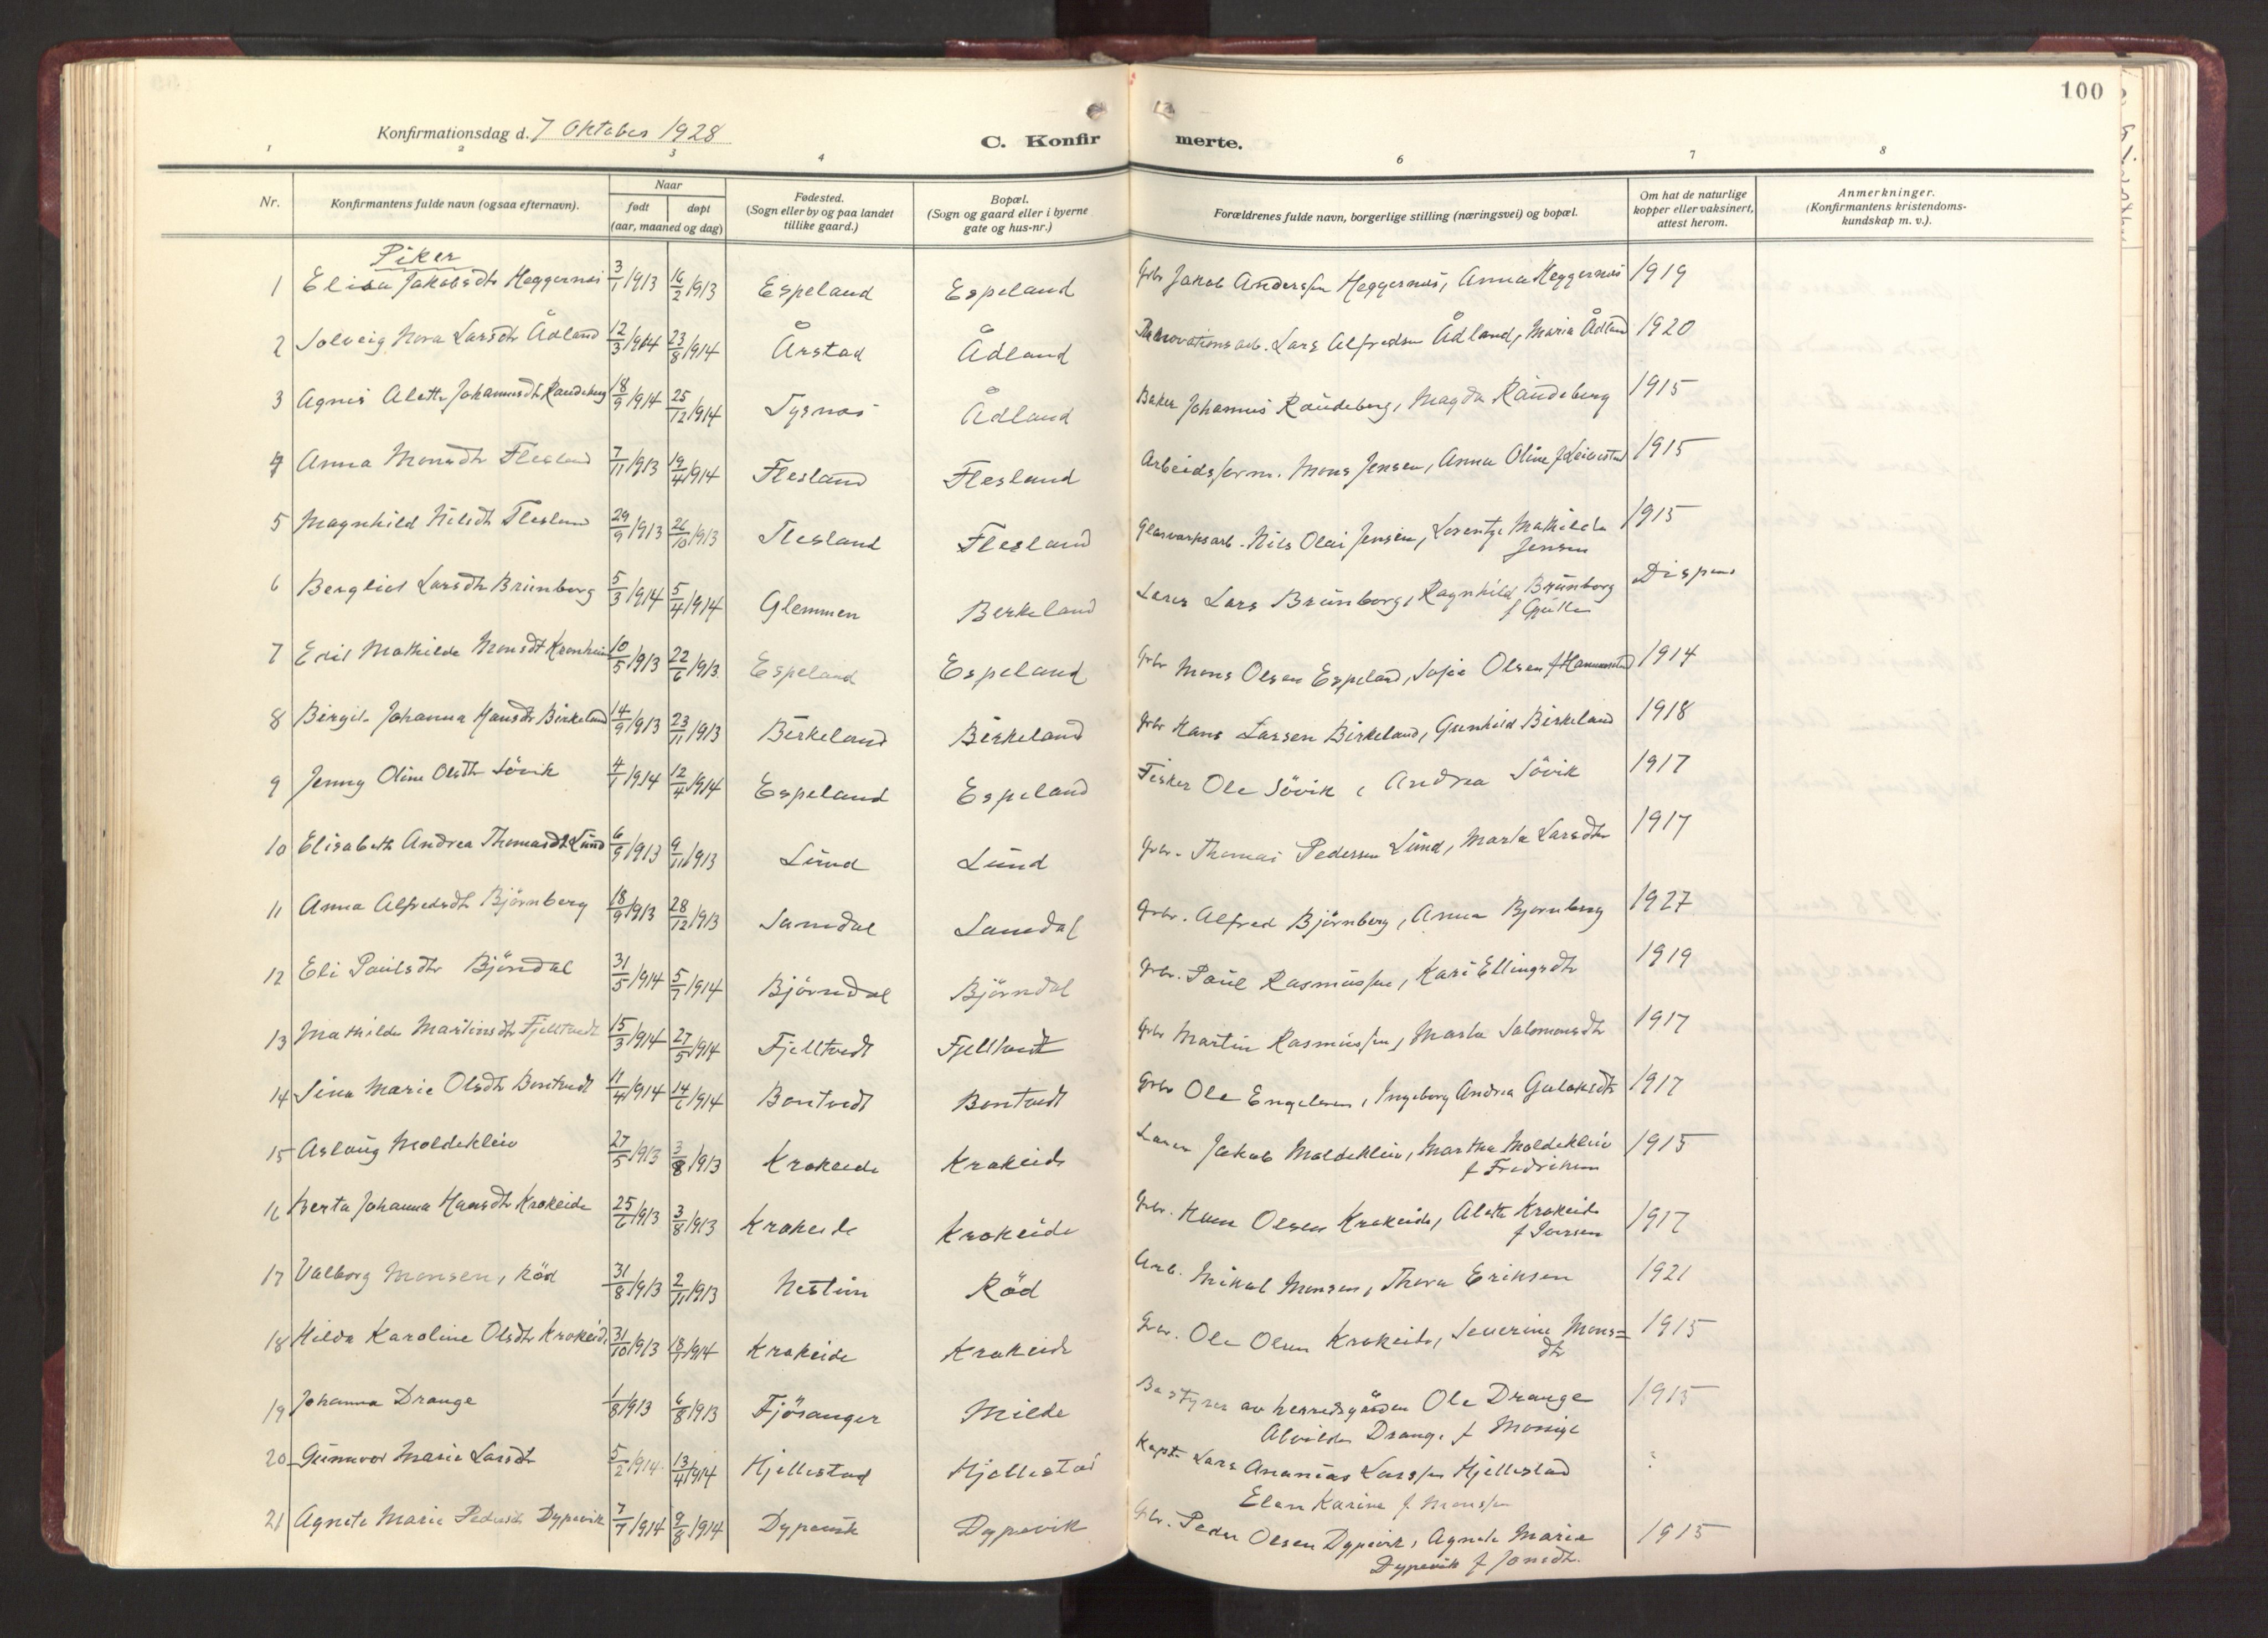 100
Konfirmationsdag d. 7 Oktober 1928
C. Konfirmerte.
1 2 3 4 6 7 8
Nr.
Konfirmantens fulde navn (ogsaa efternavn).
Naar
født
døpt
(aar, maaned og dag)
Fødested.
(Sogn eller by og paa landet
tillike gaard.)
Bopæl.
(Sogn og gaard eller i byerne
gate og hus-nr.)
Forældrenes fulde navn, borgerlige stilling (næringsvei) og bopæl.
Om hat de naturlige
kopper eller vaksinert,
attest herom.
Anmerkninger.
(Konfirmantens kristendoms-
kundskap m. v.).
Piker
1 Elisa Jakobsdtr Heggernes 3/1 1913 16/2 1913 Espeland Espeland Gbr Jakob Anderssen Heggernes, Anna Heggernes 1919
2 Solveig Nora Larsdtr Ådland 12/3 1914 23/8 1914 Årstad Ådland Renovationsarb. Lars Alfredsen Ådland, Maria Ådland 1920
3 Agnes Alette Johannesdtr Raudeberg 18/9 1914 25/12 1914 Tysnes Ådland Baker Johannes Raudeberg, Magda Raudeberg 1915
4 Anna Monsdtr Flesland 7/11 1913 19/4 1914 Flesland Flesland Arbeidsform. Mons Jensen, Anna Oline f. Leivestad 1915
5 Magnhild Nilsdtr Flesland 29/9 1913 26/10 1913 Flesland Flesland Glasverksarb. Nils Olai Jensen, Lorentze Mathilda
Jensen 1915
6 Bergliot Larsdtr Brünborg 5/3 1914 5/4 1914 Glemmen Berkeland Lærer Lars Brünborg, Ragnhild Brünborg
f 1914 Dispens
7 Edil Mathilde Monsdtr Kronheim 10/5 1913 22/6 1913 Espeland Espeland Gbr Mons Olsen Espeland, Sofie Olsen f 1914
8 Birgit Johanna Hansdtr Birkeland 14/9 1913 23/11 1913 Birkeland Birkeland Gbr Hans Larsen Birkeland, Gunhild Birkeland 1918
9 Jenny Oline Olsdtr Søvik 4/1 1914 12/4 1914 Espeland Espeland Fisker Ole Søvik, Andrea Søvik 1917
10 Elisabeth Andrea Thomasdtr Lund 6/9 1913 9/11 1913 Lund Lund Gbr. Thomas Pedersen Lund, Marta Larsdtr 1917
11 Anna Alfredsdtr Björnberg 18/9 1913 28/12 1913 Samdal Samdal Gbr. Alfred Björnberg, Anna Bjornberg 1927
12 Eli Paulsdtr Björndal 31/5 1914 5/7 1914 Björndal Björndal Gbr. Paul Rasmussen, Kari Ellingsdtr 1919
13 Mathilde Martinsdtr Fjelltvedt 15/3 1914 27/5 1914 Fjelltvedt Fjelltvedt Gbr Martin Rasmussen, Marta Salomonsdtr 1917
14 Sina Marie Olsdtr Bontvedt 11/4 1914 14/6 1914 Bontvedt Bontvedt Gbr Ole Engelsen, Ingeborg Andrea Gulaksdtr 1917
15 Aslaug Moldekleiv 27/5 1913 3/8 1913 Krokeide Krokeide Lærer Jakob Moldekleiv, Martha Moldekleiv
f Fredriksen 1915
16 Berta Johanna Hansdtr Krokeide 25/6 1913 3/8 1913 Krokeide Krokeide Gbr. Hans Olsen Krokeide, Alette Krokeide
f Iversen 1917
17 Valborg Monsen, Röd 31/8 1913 2/11 1913 Nestun Röd Arb. Mikal Monsen, Thora Eriksen 1921
18 Hilda Karoline Olsdtr Krokeide 31/10 1913 18/1 1914 Krokeide Krokeide Gbr. Ole Olsen Krokeide, Severine Mons=
dtr 1915
19 Johanna Drange 1/8 1913 6/8 1913 Fjösanger Milde Bestyrer av herredsgården Ole Drange
Alvilde Drange f Monige 1915
20 Gunnvor Marie Larsdtr 5/2 1914 13/4 1914 Hjellestad Hjellestad Kapt. Lars Ananias Larssen Hjellestad
Elen Karine f. Monssen :
21 Agnete Marie Pedersdtr Dypevik 7/7 1914 9/8 1914 Dypevik Dypevik Gbr. Peder Olsen Dypevik, Agnete Marie
Dypevik f Jonsdtr. 1915